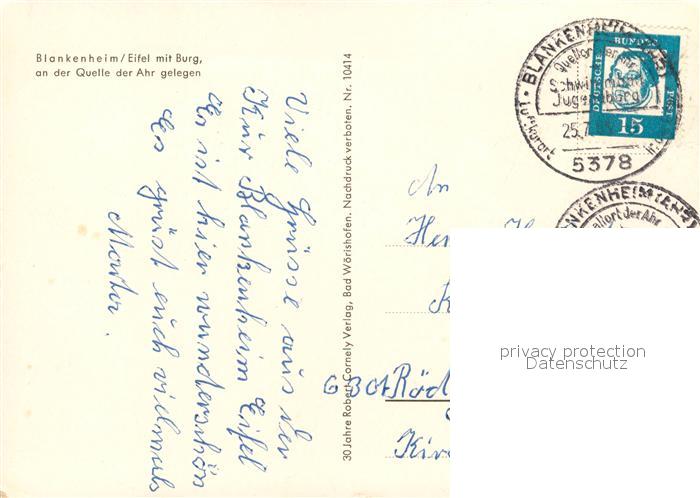 Blankenheim/Eifel mit Burg,
an der Quelle der Ahr gelegen
Viele Grüsse aus der
Kur Blankenheim Eifel
Es ist hier wunderschön
Es grüst euch vielmals
Marta.
30 Jahre Robert Cornely Verlag, Bad Wörishofen. Nachdruck verboten. Nr. 10414
BLANKENHEIM (AHR)
Quellort der Ahr
Schwimmbad
Jugendburg
Luftkurort
25.7.
5378
DEUTSCHE BUNDESPOST
15
BLANKENHEIM (AHR)
Quellort der Ahr
An
Her
K
Röd
Kir
privacy protection
Datenschutz